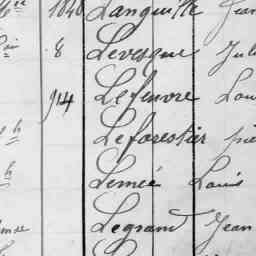 1840 Languille Jean
8 Levesque Jule
94 Lefeuvre Lou
Leforestier pie
Lemée Louis
Legrand Jean